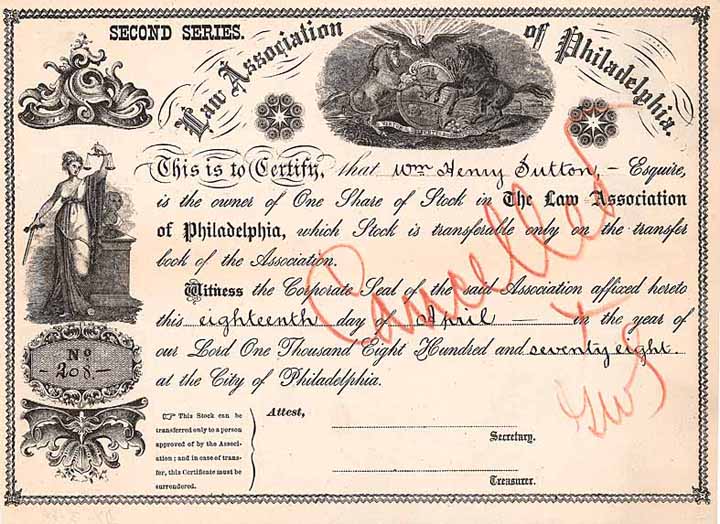 SECOND SERIES.
Law Association of Philadelphia.
This is to Certify, that Wm Henry Sutton, – Esquire,
is the owner of One Share of Stock in The Law Association
of Philadelphia, which Stock is transferable only on the transfer
book of the Association.
Witness the Corporate Seal of the said Association affixed hereto
this eighteenth day of April – in the year of
our Lord One Thousand Eight Hundred and seventy eight.
at the City of Philadelphia.
No
- 208 -
Cancelled
☞ This Stock can be
transferred only to a person
approved of by the Associ-
ation; and in case of trans-
fer, this Certificate must be
surrendered.
Attest,
Secretary.
Treasurer.